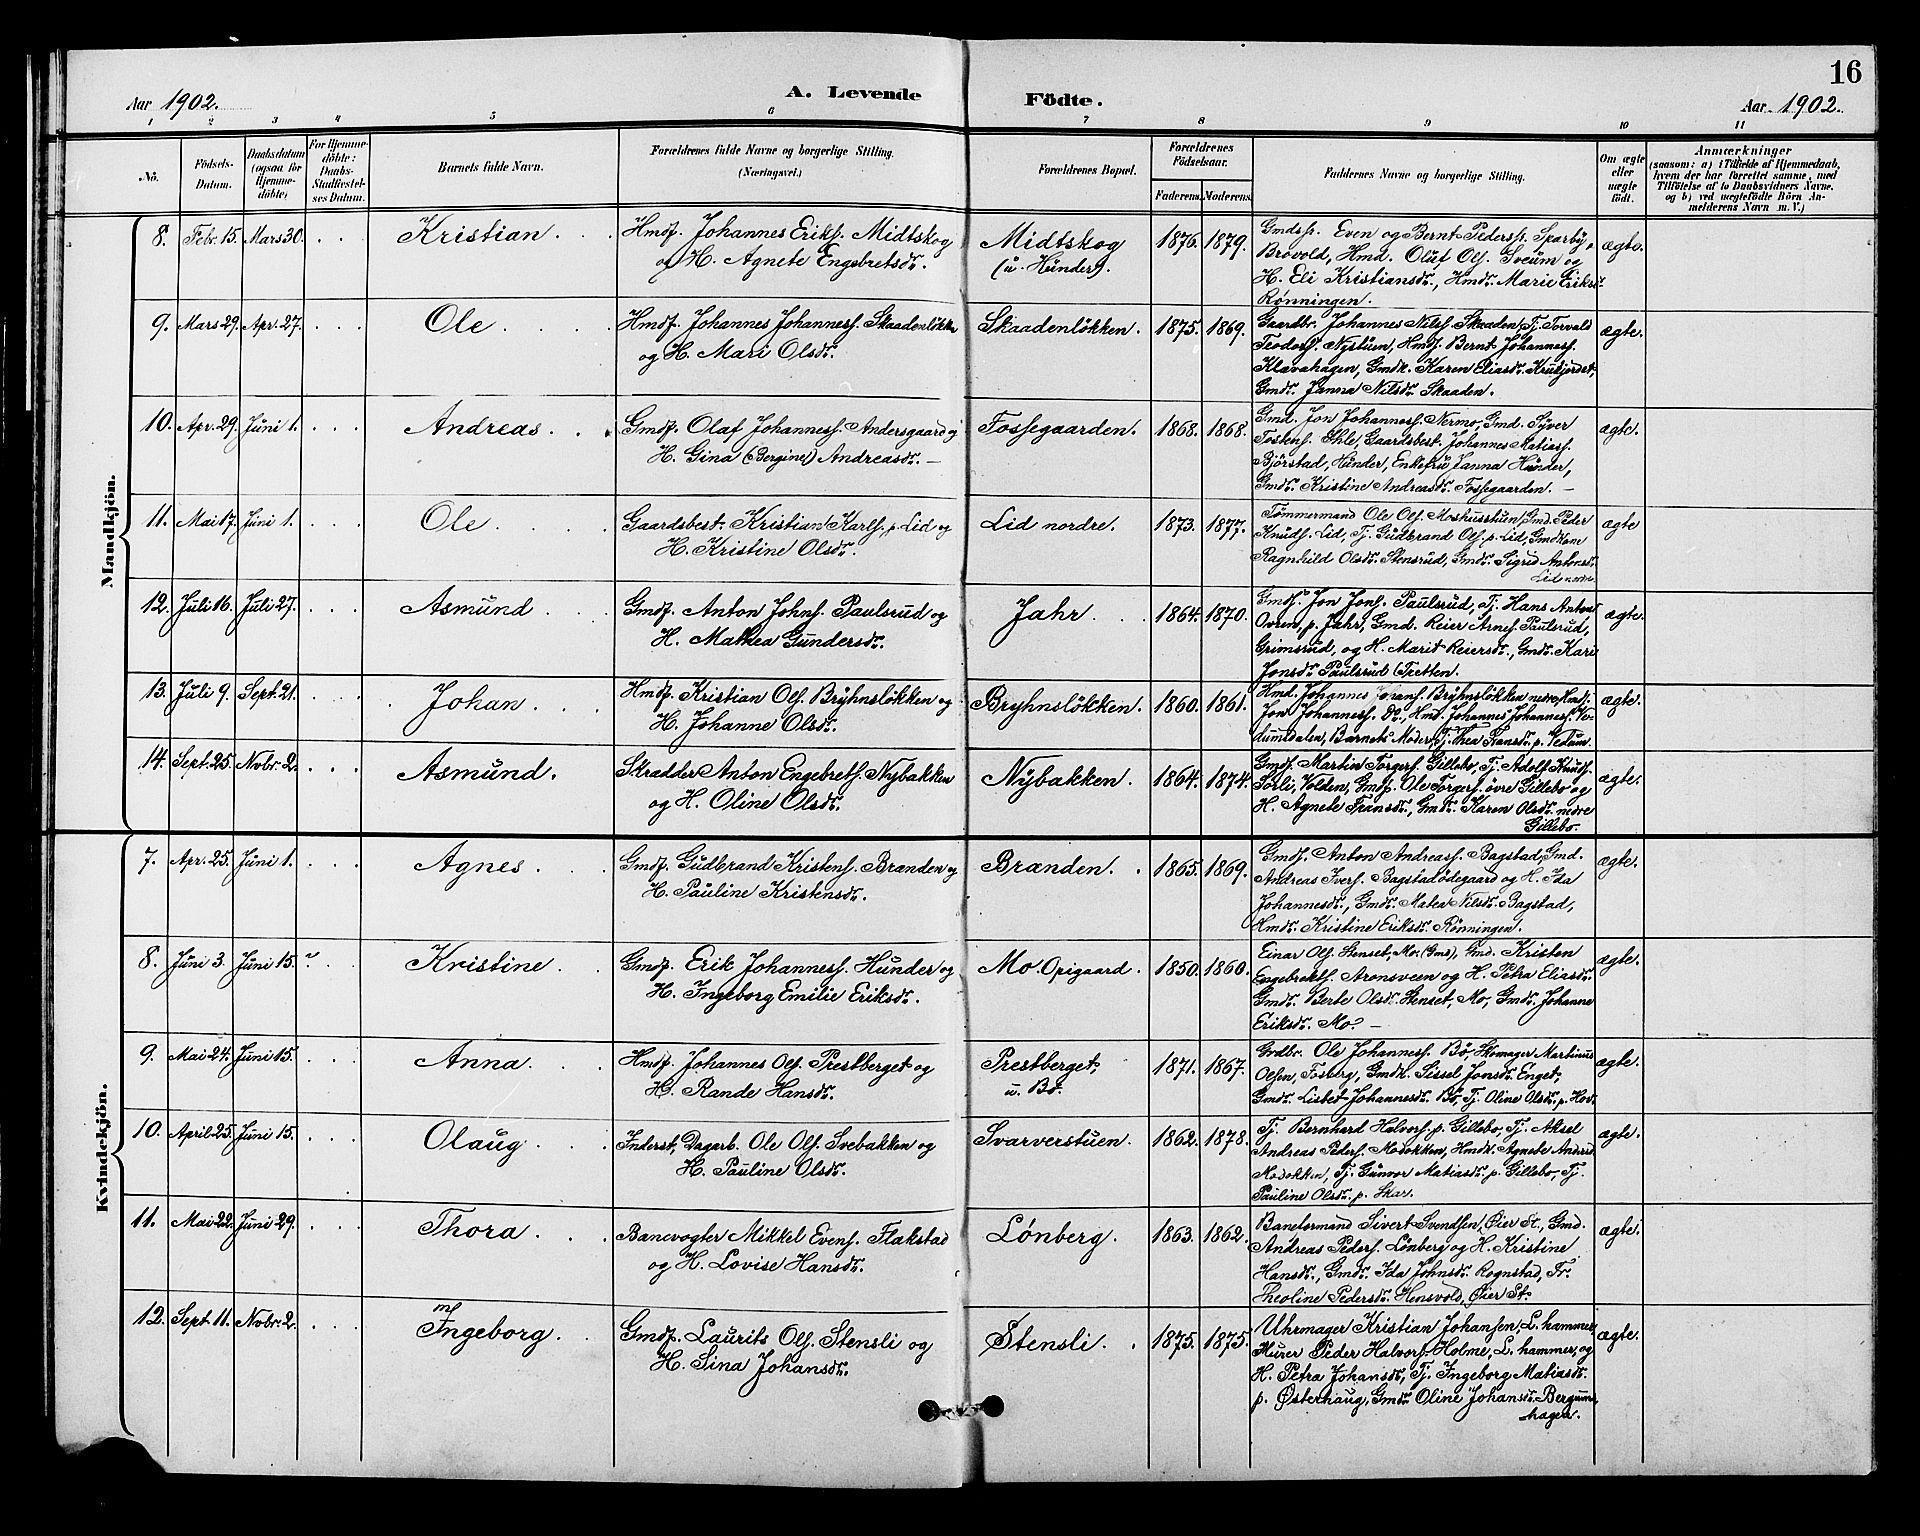 16
Aar 1902.
A. Levende
Födte.
Aar 1902.
1 2 3 4 5 6 7 8 9 10 11
No.
Födsels-
Datum.
Daabsdatum
(ogsaa for
Hjemme-
döbte)
For Hjemme-
döbte:
Daabs-
Stadfæstel-
ses Datum.
Barnets fulde Navn.
Forældrenes fulde Navne og borgerlige Stilling.
(Næringsvei.)
Forældrenes Bopæl.
Forældrenes
Födselsaar.
Faderens.
Moderens.
Faddernes Navne og borgerlige Stilling.
Om ægte
eller
uægte
födt.
Anmærkninger
(saasom: a) i Tilfælde af Hjemmedaab,
hvem der har forrettet samme, med
Tilföielse af to Daabsvidners Navne.
og b) ved uægtefödte Börn An-
melderens Navn m. V.)
Mandkjön.
8. Febr. 15. Mars 30. Kristian
Hmdf. Johannes Eriks. Midtskog
og H. Agnete Engebretsdr.
Midtskog
(u. Hunder).
1876. 1879.
Gmdss. Even og Bernt Pederss. Sparby,
Brovold, Hmd. Oluf Ols. Sveum og
H. Eli Kristiansdr., Hmdr. Marie Eriksdr
Rønningen.
ægte.
9. Mars 29. Apr. 27. Ole
Hmdf. Johannes Johanness. Skaadenlökken
og H. Mari Olsdr.
Skaadenlökken.
1875. 1869.
Gaardbr. Johannes Nilss. Skaaden, Tj. Torvald
Teodors. Nystuen, Hmdf. Bernt Johanness.
Klavahagen, Gmdk. Karen Eliasdr. Krukjordet,
Gmdr. Janna Nilsdr. Skaaden.
ægte.
10. Apr. 29. Juni 1. Andreas
Gmdf. Olaf Johanness. Andersgaard og
H. Gina (Bergine) Andreasdr.
Fossegaarden.
1868. 1868.
Gmd. Jon Johanness. Nermo, Gmd. Syver
Toskens. Ihle, Gaardsbest. Johannes Matiass.
Bjørstad, Hunder, Enkefru Janna Hunder,
Gmdr. Kristine Andreasdr. Fossegaarden.
ægte.
11. Mai 17. Juni 1. Ole
Gaardsbest. Kristian Karls. p. Lid og
H. Kristine Olsdr.
Lid nordre.
1873. 1877.
Tømmermand Ole Ols. Moshusstuen, Gmd. Peder
Knuds. Lid, Tj. Gudbrand Ols. p. Lid, Gmdkone
Ragnhild Olsdr. Stensrud, Gmdr. Sigrid Antonsdr.
Lid nordre.
ægte
12. Juli 16. Juli 27. Asmund
Gmdf. Anton Johns. Paulsrud og
H. Mathea Gundersdr.
Jahr
1864. 1870.
Gmdf. Jon Jons. Paulsrud, Tj. Hans Antons.
Ovren, p. Jahr, Gmd. Reier Arnes. Paulsrud,
Grimsrud, og H. Marit Reiersdr., Gmdr. Kari
Jonsdr. Paulsrud (Tretten.
ægte.
13. Juli 9. Sept. 21. Johan
Hmdf. Kristian Ols. Bryhnsløkken og
H. Johanne Olsdr.
Bryhnsløkken.
1860. 1861.
Hmd. Johannes Johans. Bryhnsløkken nedre, Hmd.
Jon Johanness. Do, Hmd. Johannes Johanness. Ve-
dumsdalen, Barnets Moder, Tj. Thea Hansdr. p. Vedum.
ægte.
14. Sept. 25. Novbr. 2. Asmund.
Skrædder Anton Engebrets. Nybakken
og H. Oline Olsdr.
Nybakken.
1864. 1874.
Gmdf. Martin Torgers. Gillebo, Tj. Adolf Knuds.
Sørli, Volden, Gmdf. Ole Torgers. øvre Gillebo og
H. Agnete Fransdr., Gmdr. Karen Olsdr. nedre
Gillebo.
ægte.
Kvindekjön.
7. Apr. 25. Juni 1. Agnes
Gmdf. Gudbrand Kristens. Brænden og
H. Pauline Kristensdr.
Brænden.
1865. 1869.
Gmdf. Anton Andreass. Bagstad, Gmd.
Andreas Ivers. Bagstadødegaard og H. Ida
Johannesdr., Gmdr. Matea Nilsdr. Bagstad,
Hmdr. Kristine Eriksdr. Rønningen.
ægte.
8. Juni 3. Juni 15. Kristine
Gmdf. Erik Johanness. Hunder og
H. Ingeborg Emilie Eriksdr.
Mo Opigaard
1850. 1860.
Einar Ols. Stenset, Mo, (Gms), Gmd. Kristen
Engebrekts. Aronsveen og H. Petra Eliasdr.
Gmdr. Berte Olsdr. Stenset, Mo, Gmdr. Johanne
Eriksdr. Mo.
ægte.
9. Mai 24. Juni 15. Anna
Hmdf. Johannes Ols. Prestberget og
H. Rande Hansdr.
Prestberget
u. Bø.
1871. 1867.
Grdbr. Ole Johanness. Bø, Skomager Martinus
Olsen, Fosberg, Gmdk. Sissel Jonsdr. Enget,
Gmdr. Lisbet Johannesdr. Bø, Tj. Oline Olsdr. p. Hov.
ægte.
10. April 25. Juni 15. Olaug
Inderst, Dagarb. Ole Ols. Svebakken og
H. Pauline Olsdr.
Svarverstuen.
1862. 1878.
Tj. Bernhard Halvors. p. Gillebo, Tj. Aksel
Andreas Peders. Modokken, Hmdk. Agnete Andersd.
Modokken, Tj. Gunvor Matiasdr. p. Gillebo, Tj.
Pauline Olsdr. p. Skar.
ægte.
11. Mai 22. Juni 29. Thora
Banevogter Mikkel Evens. Flakstad
og H. Lovise Hansdr.
Lønberg.
1863. 1862.
Baneformand Sivert Svendsen, Øier St., Gmd.
Andreas Peders. Lønberg og H. Kristine
Hansdr., Gmdr. Ida Johnsdr. Rognstad, Fr.
Theoline Pedersdr. Hensvold, Øier St.
ægte.
12. Sept. 11. Novbr. 2. Ingeborg.
Gmdf. Laurits Ols. Stensli og
H. Sina Johansdr.
Stensli.
1875. 1875.
Uhrmager Kristian Johansen, L. hammer,
Murer Peder Halvors. Holme, L. hammer, og
H. Petra Johansdr., Tj. Ingeborg Matiasdr.
p. Østerhaug, Gmdr. Oline Johansdr. Bergums
hagen.
ægte.